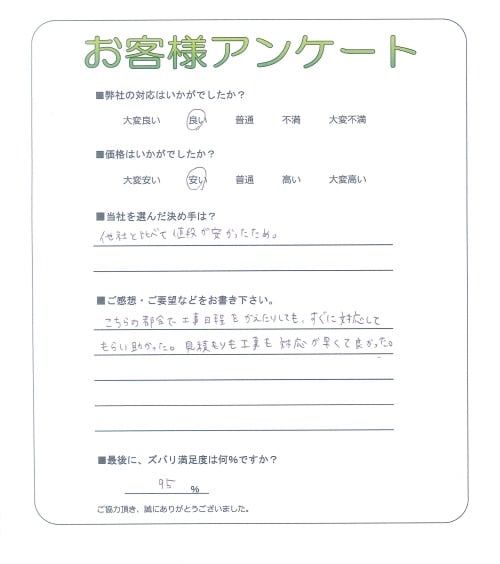 お客様アンケート
■弊社の対応はいかがでしたか？
大変良い 良い 普通 不満 大変不満
■価格はいかがでしたか？
大変安い 安い 普通 高い 大変高い
■当社を選んだ決め手は？
他社と比べて値段が安かったため。
■ご感想・ご要望などをお書き下さい。
こちらの都合で工事日程をかえたりしても、すぐに対応して
もらい助かった。見積もりも工事も対応が早くて良かった。
■最後に、ズバリ満足度は何％ですか？
95 %
ご協力頂き、誠にありがとうございました。